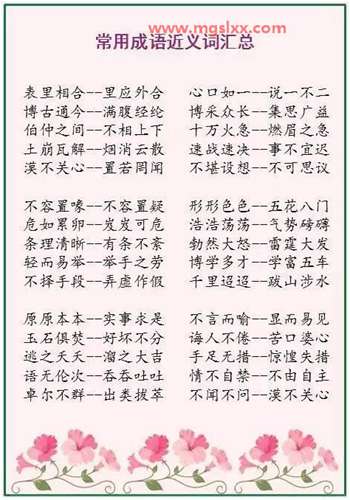 www.mgslxx.com
常用成语近义词汇总
表里相合--里应外合 心口如一--说一不二
博古通今--满腹经纶 博采众长--集思广益
伯仲之间--不相上下 十万火急--燃眉之急
土崩瓦解--烟消云散 速战速决--事不宜迟
漠不关心--置若罔闻 不堪设想--不可思议
不容置喙--不容置疑 形形色色--五花八门
危如累卵--岌岌可危 浩浩荡荡--气势磅礴
条理清晰--有条不紊 勃然大怒--雷霆大发
轻而易举--举手之劳 博学多才--学富五车
不择手段--弄虚作假 千里迢迢--跋山涉水
原原本本--实事求是 不言而喻--显而易见
玉石俱焚--好坏不分 诲人不倦--苦口婆心
逃之夭夭--溜之大吉 手足无措--惊惶失措
语无伦次--吞吞吐吐 情不自禁--不由自主
卓尔不群--出类拔萃 不闻不问--漠不关心